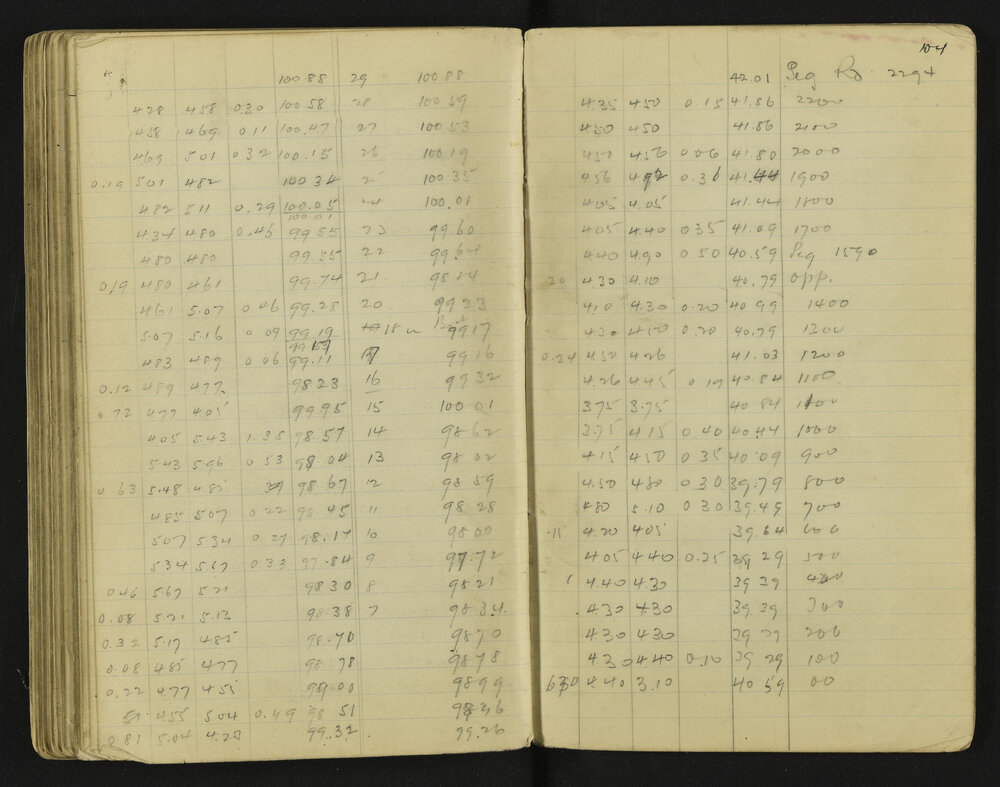 100.88 29 100.88
428 458 0.30 100.58 28 100.59
458 469 0.11 100.47 27 100.53
469 5.01 0.32 100.15 26 100.19
0.19 501 482 100.34 100.35
482 511 0.29 100.05 100.01
100.01
434 480 0.46 99.55 23 99.60
480 480 99.55 22 99.64
0.19 480 461 99.74 21
461 5.07 0.46 99.28 20 99.33
5.07 5.16 0.09 99.19 18 99.17
483 489 0.06 99.11 99.16
0.12 489 477 98.23 16 99.32
0.72 477 4.05 99.95 15 100.01
405 543 1.38 98.57 14 98.62
543 5.96 0.53 98.04 13 98.02
0.63 5.48 485 98.67 12 98.59
485 507 0.22 98.45 11 98.28
507 534 0.27 98.17 10 98.00
534 5.67 0.33 97.84 9 97.72
0.46 5.67 5.21 98.30 8 98.21
0.08 5.21 5.13 98.38 7 98.34
0.32 5.17 485 98.70 98.70
0.08 485 477 98.78 98.78
0.22 477 455 99.00 98.99
455 504 0.49 98.51 98.36
0.81 5.04 4.23 99.32 99.26
104
42.01 Peg 2294
435 450 0.15 41.86 2200
450 450 41.86 2100
450 456 0.06 41.80 2000
456 492 0.36 41.44 1900
405 4.05 41.44 1800
405 4.40 0.35 41.09 1700
440 490 0.50 40.59 Peg 1590
20 430 4.10 40.79 opp.
410 430 0.20 40.99 1400
430 450 0.20 40.79 1300
0.24 450 426 41.03 1200
4.26 445 0.19 40.84 1100
375 3.75 40.84
3.75 415 0.40 40.44 1000
415 450 0.35 40.09 900
4.50 480 0.30 39.79 800
480 5.10 0.30 39.49 700
15 4.20 405 39.64 600
405 440 0.25 39.29 500
4.40 4.30 39.39 400
430 4.30 39.39 300
430 430 200
4.30 4.40 0.10 39.29 100
4.40 3.10 40.59 00